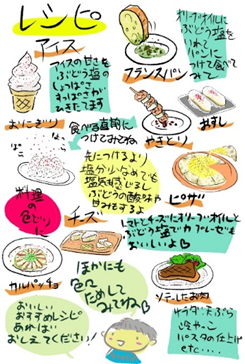 レシピ
アイス
アイスの甘さを
ぶどう塩の
しょっぱさが
ひきたてます
オリーブオイルに
ぶどう塩を
つけて食べて
みて
フランスパン
おにぎり
食べる直前に
つけてみてね。
やきとり
おすし
先につけるより
塩分少なめでも
塩気を感じるし
ぶどうの酸味や
甘みもするよ
料理の
色どりに
ピザ
チーズ
トマトとチーズにオリーブオイルと
ぶどう塩でカプレーゼも
おいしいよ
カルパッチョ
ほかにも
色々
ためして
みてね
ソテーしたお肉
おいしい
おすすめレシピ
あれば
おしえてください!
サラダ・天ぷら
冷やっこ
パスタの仕上げ
etc....